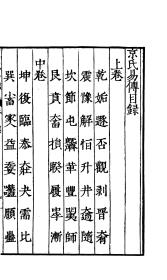 京氏易傳目録
上卷
乾姤遯否觀剝晉大有
震豫解恒升井大過隨
坎節屯既濟革豐明夷師
艮賁大畜損睽履中孚漸
中卷
坤復臨泰大壯夬需比
巽小畜家人益无妄噬嗑頤蠱